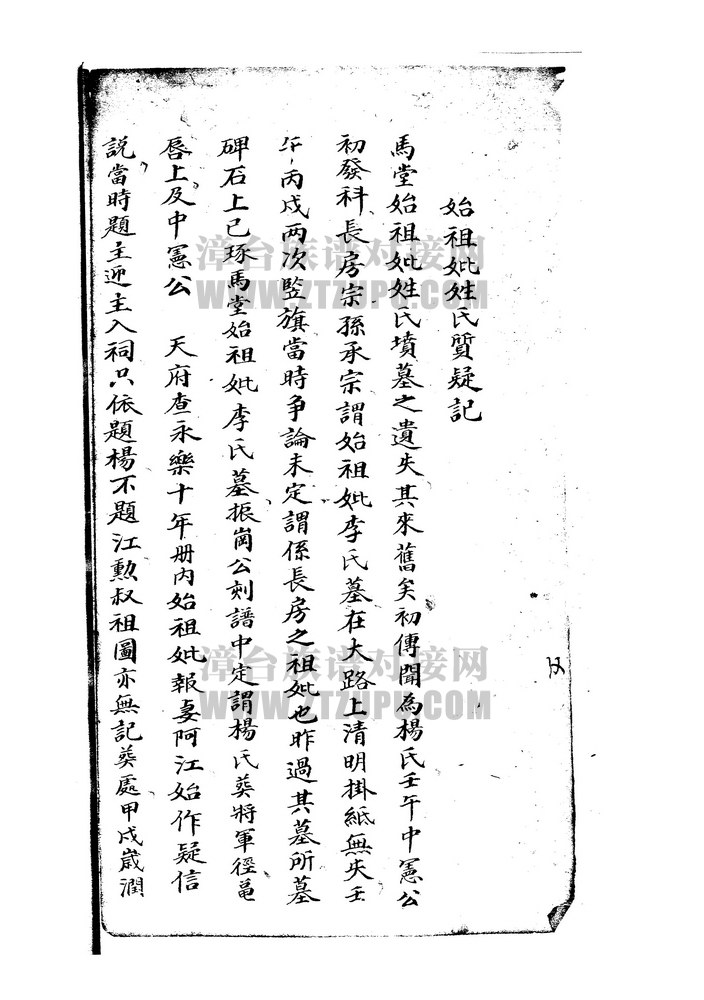 始祖妣姓氏質疑記
馬堂始祖妣姓氏墳墓之遺失其來舊矣初傳聞為楊氏壬午中憲公
初發科長房宗孫承宗謂始祖妣李氏墓在大路上清明掛紙無失壬
午丙戌两次竪旗當時争論未定謂係長房之祖妣也昨過其墓所墓
碑石上已琢馬堂始祖妣李氏墓振崗公刻譜中定謂楊氏葬將軍徑黽
唇上及中憲公 天府查永樂十年册内始祖妣報妻阿江始作疑信
説當時題主迎主入祠只依題楊不題江勲叔祖圖亦無記葬處甲戌歲潤
漳台族谱对接网
WWW.ZTZUPU.COM
漳台族谱对接网
WWW.ZTZUPU.COM